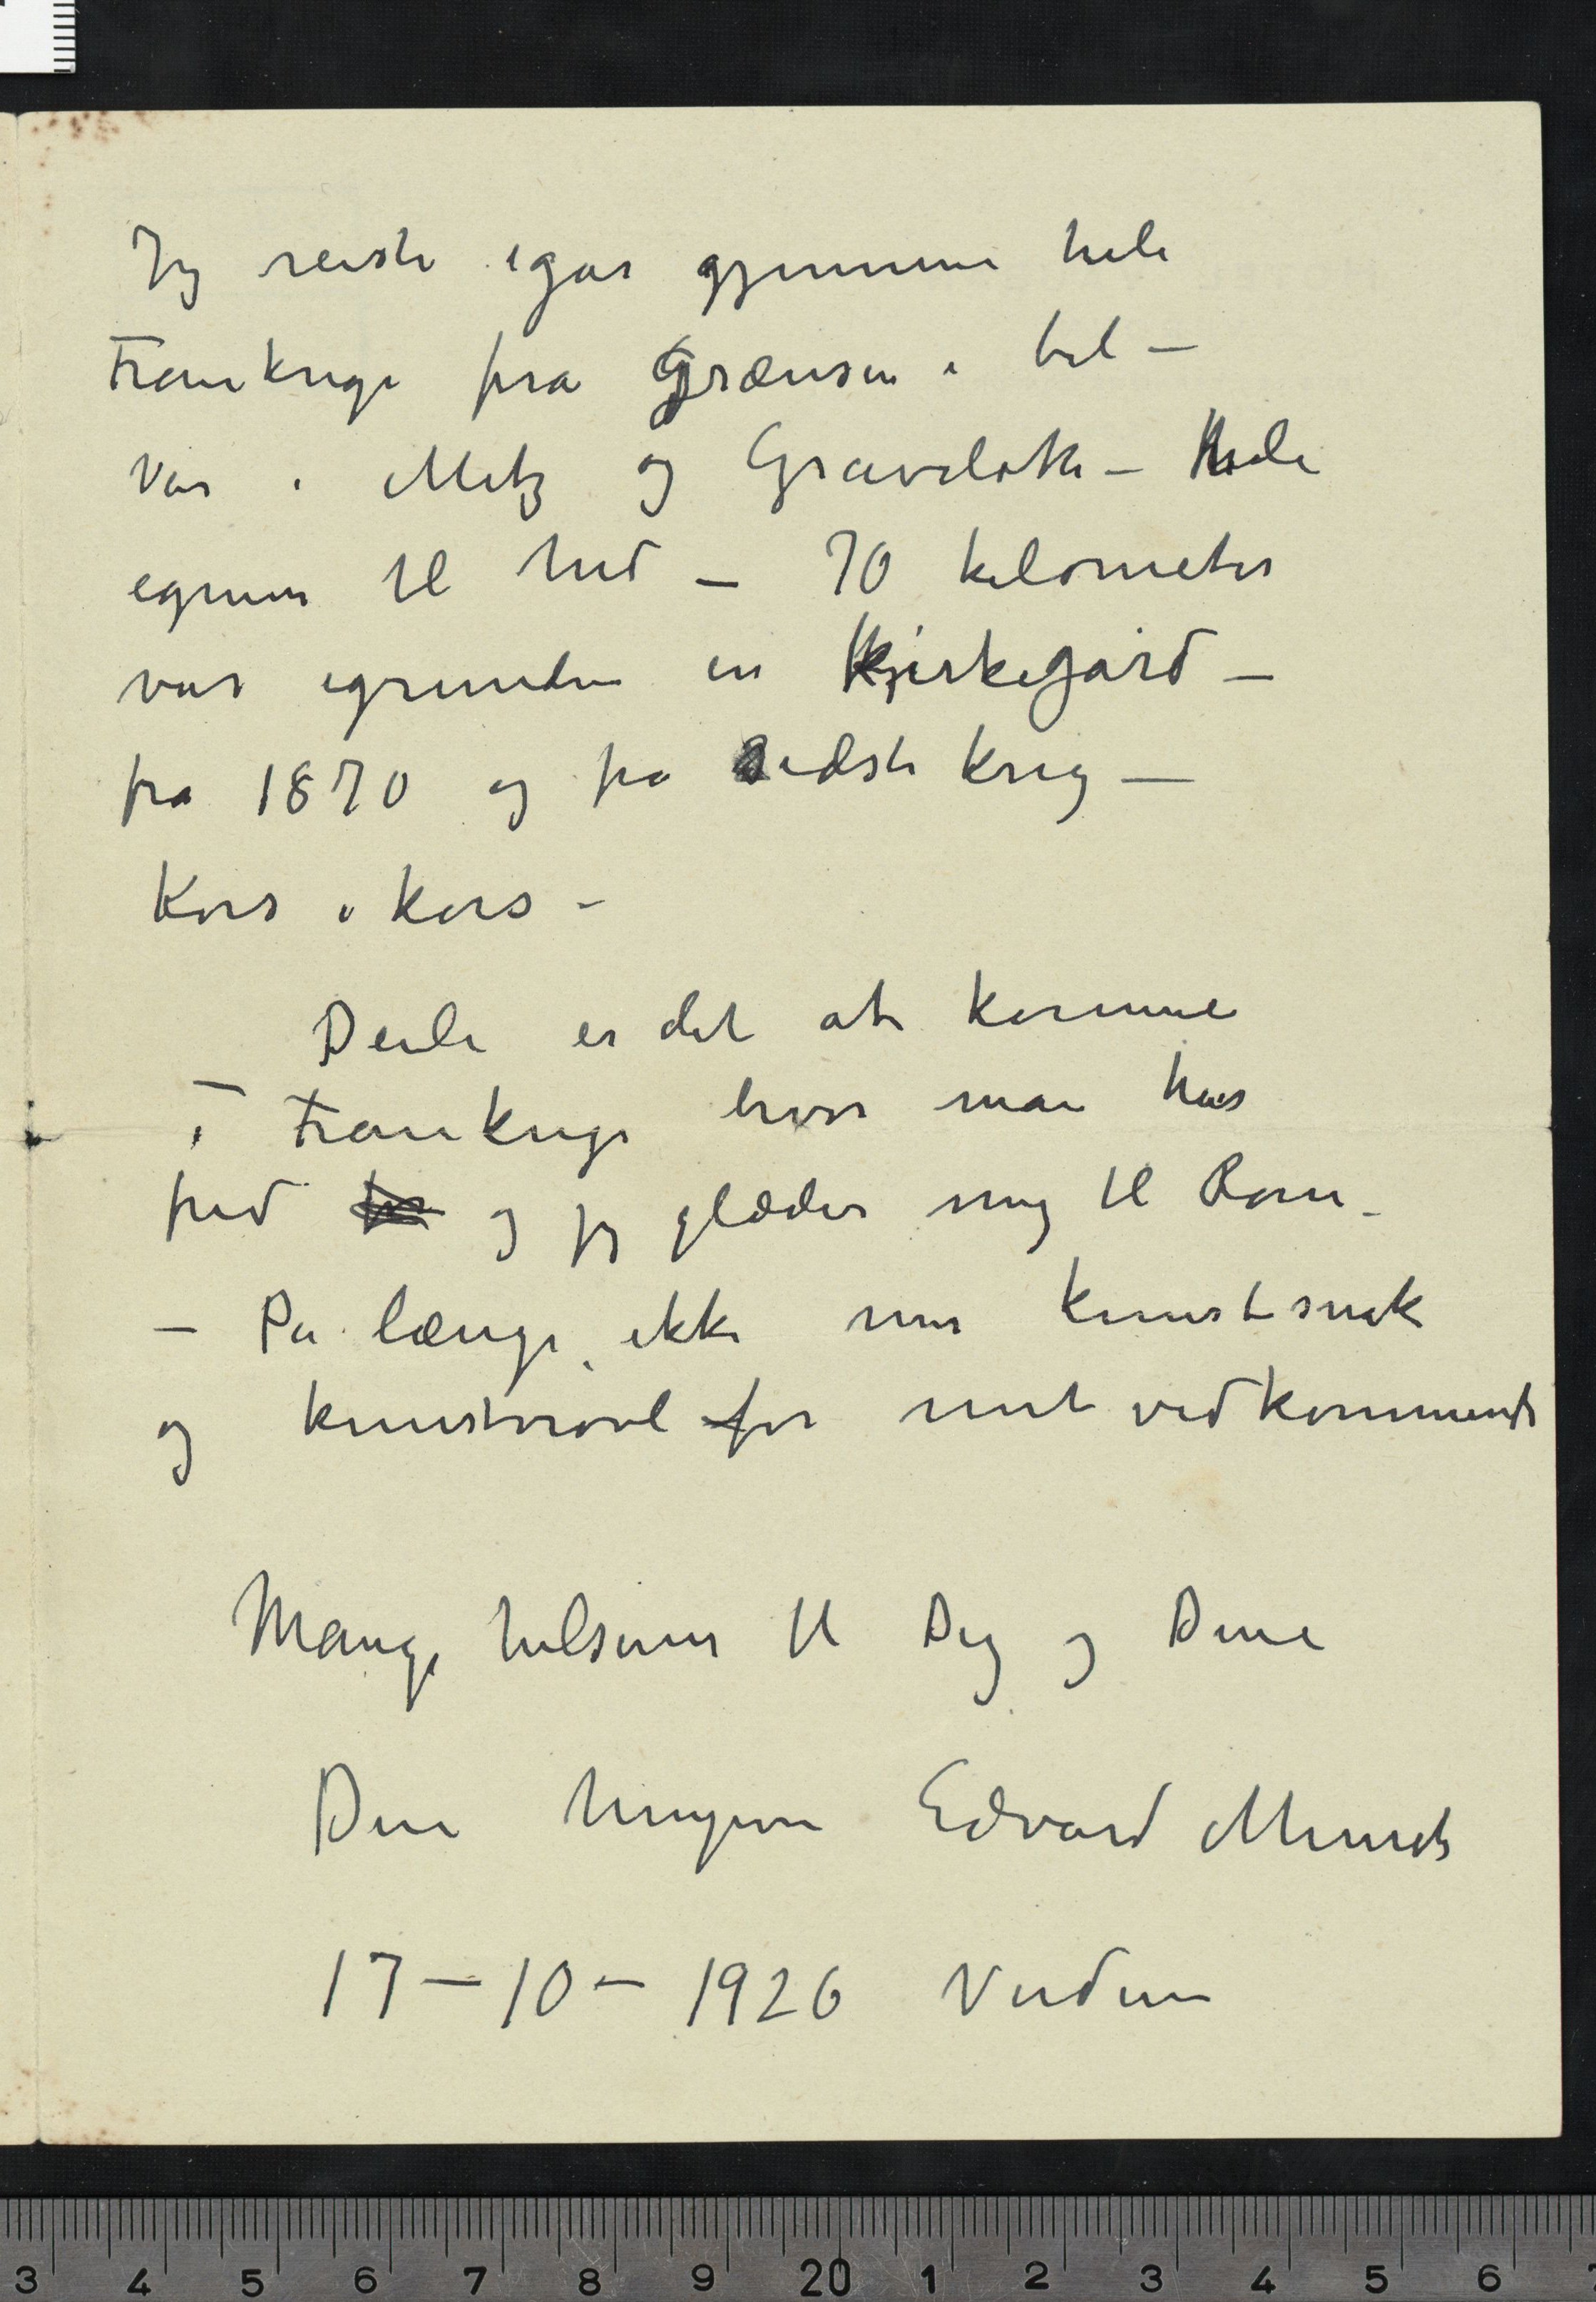 Jeg reiste igår gjennem hele
Frankrige fra Grænsen i bil –
Var i Metz og Gravelotte – Hele
egnen til hid – 70 kilometer
var igrunden en Kjirkegård –
fra 1870 og fra sidste krig –
Kors i kors –
Deili er det at komme
i Frankrige hvor man har
fred og jeg glæder mig til Rom –
– På længe ikke mer kunstsnak
og kunstvrøvl for mit vedkommende
Mange hilsener til Dig og Dine
Din hengivne Edvard Munch
17 – 10 – 1926 Verdun
3 4 5 6 7 8 9 20 1 2 3 4 5 6